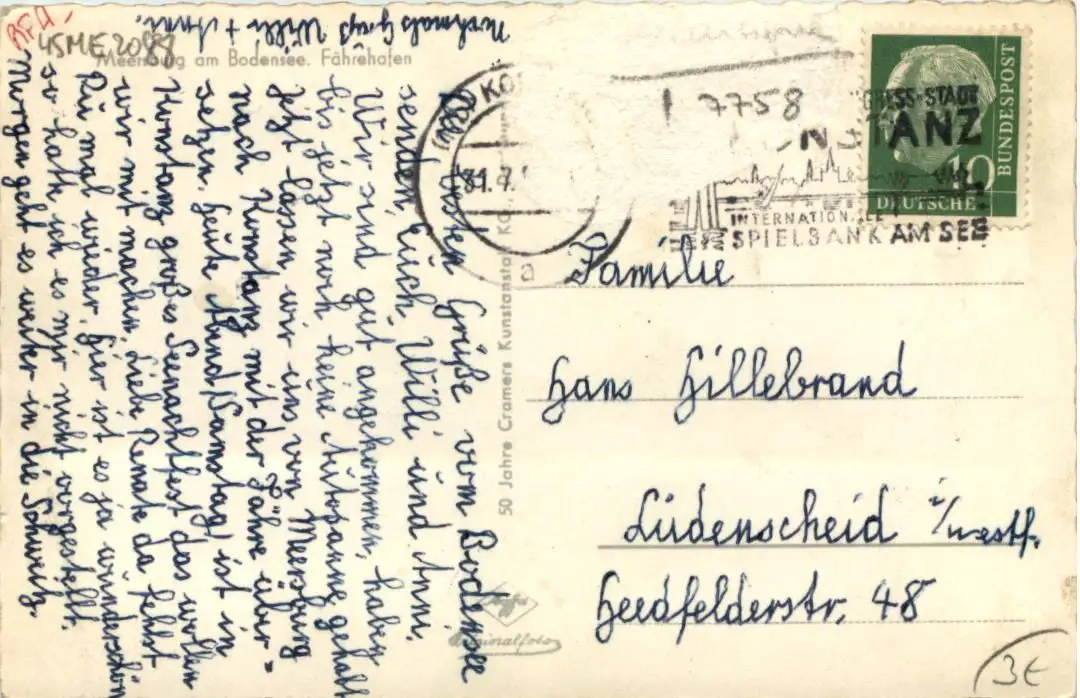 RFA.
45ME2088
Meersburg am Bodensee. Fährehafen
Die besten Grüße vom Bodensee
senden Euch, Willi und Anni,
Wir sind gut angekommen, haben
bis jetzt noch keine Autopanne gehabt
Jetzt lassen wir uns von Meersburg
nach Konstanz mit der Fähre über=
setzen, heute Abend (Samstag) ist in
Konstanz großes Seenachtfest das wollen
wir mit machen. Liebe Renate da fehlst
Du mal wieder, hier ist es ja wunderschön
so hath ich es mir nicht vorgestellt.
Morgen geht es weiter in die Schweiz
Nochmals Gruß Willi + Anni.
50 Jahre Cramers Kunstanstalt KG.,
Agfa
Originalfoto
31.7.
a
7758
GRESS-STADT
KONSTANZ
INTERNATIONALE
SPIELBANK AM SEE
BUNDESPOST
10
DEUTSCHE
Familie
Hans Hillebrand
Lüdenscheid i/westf.
Heedfelderstr. 48
3€